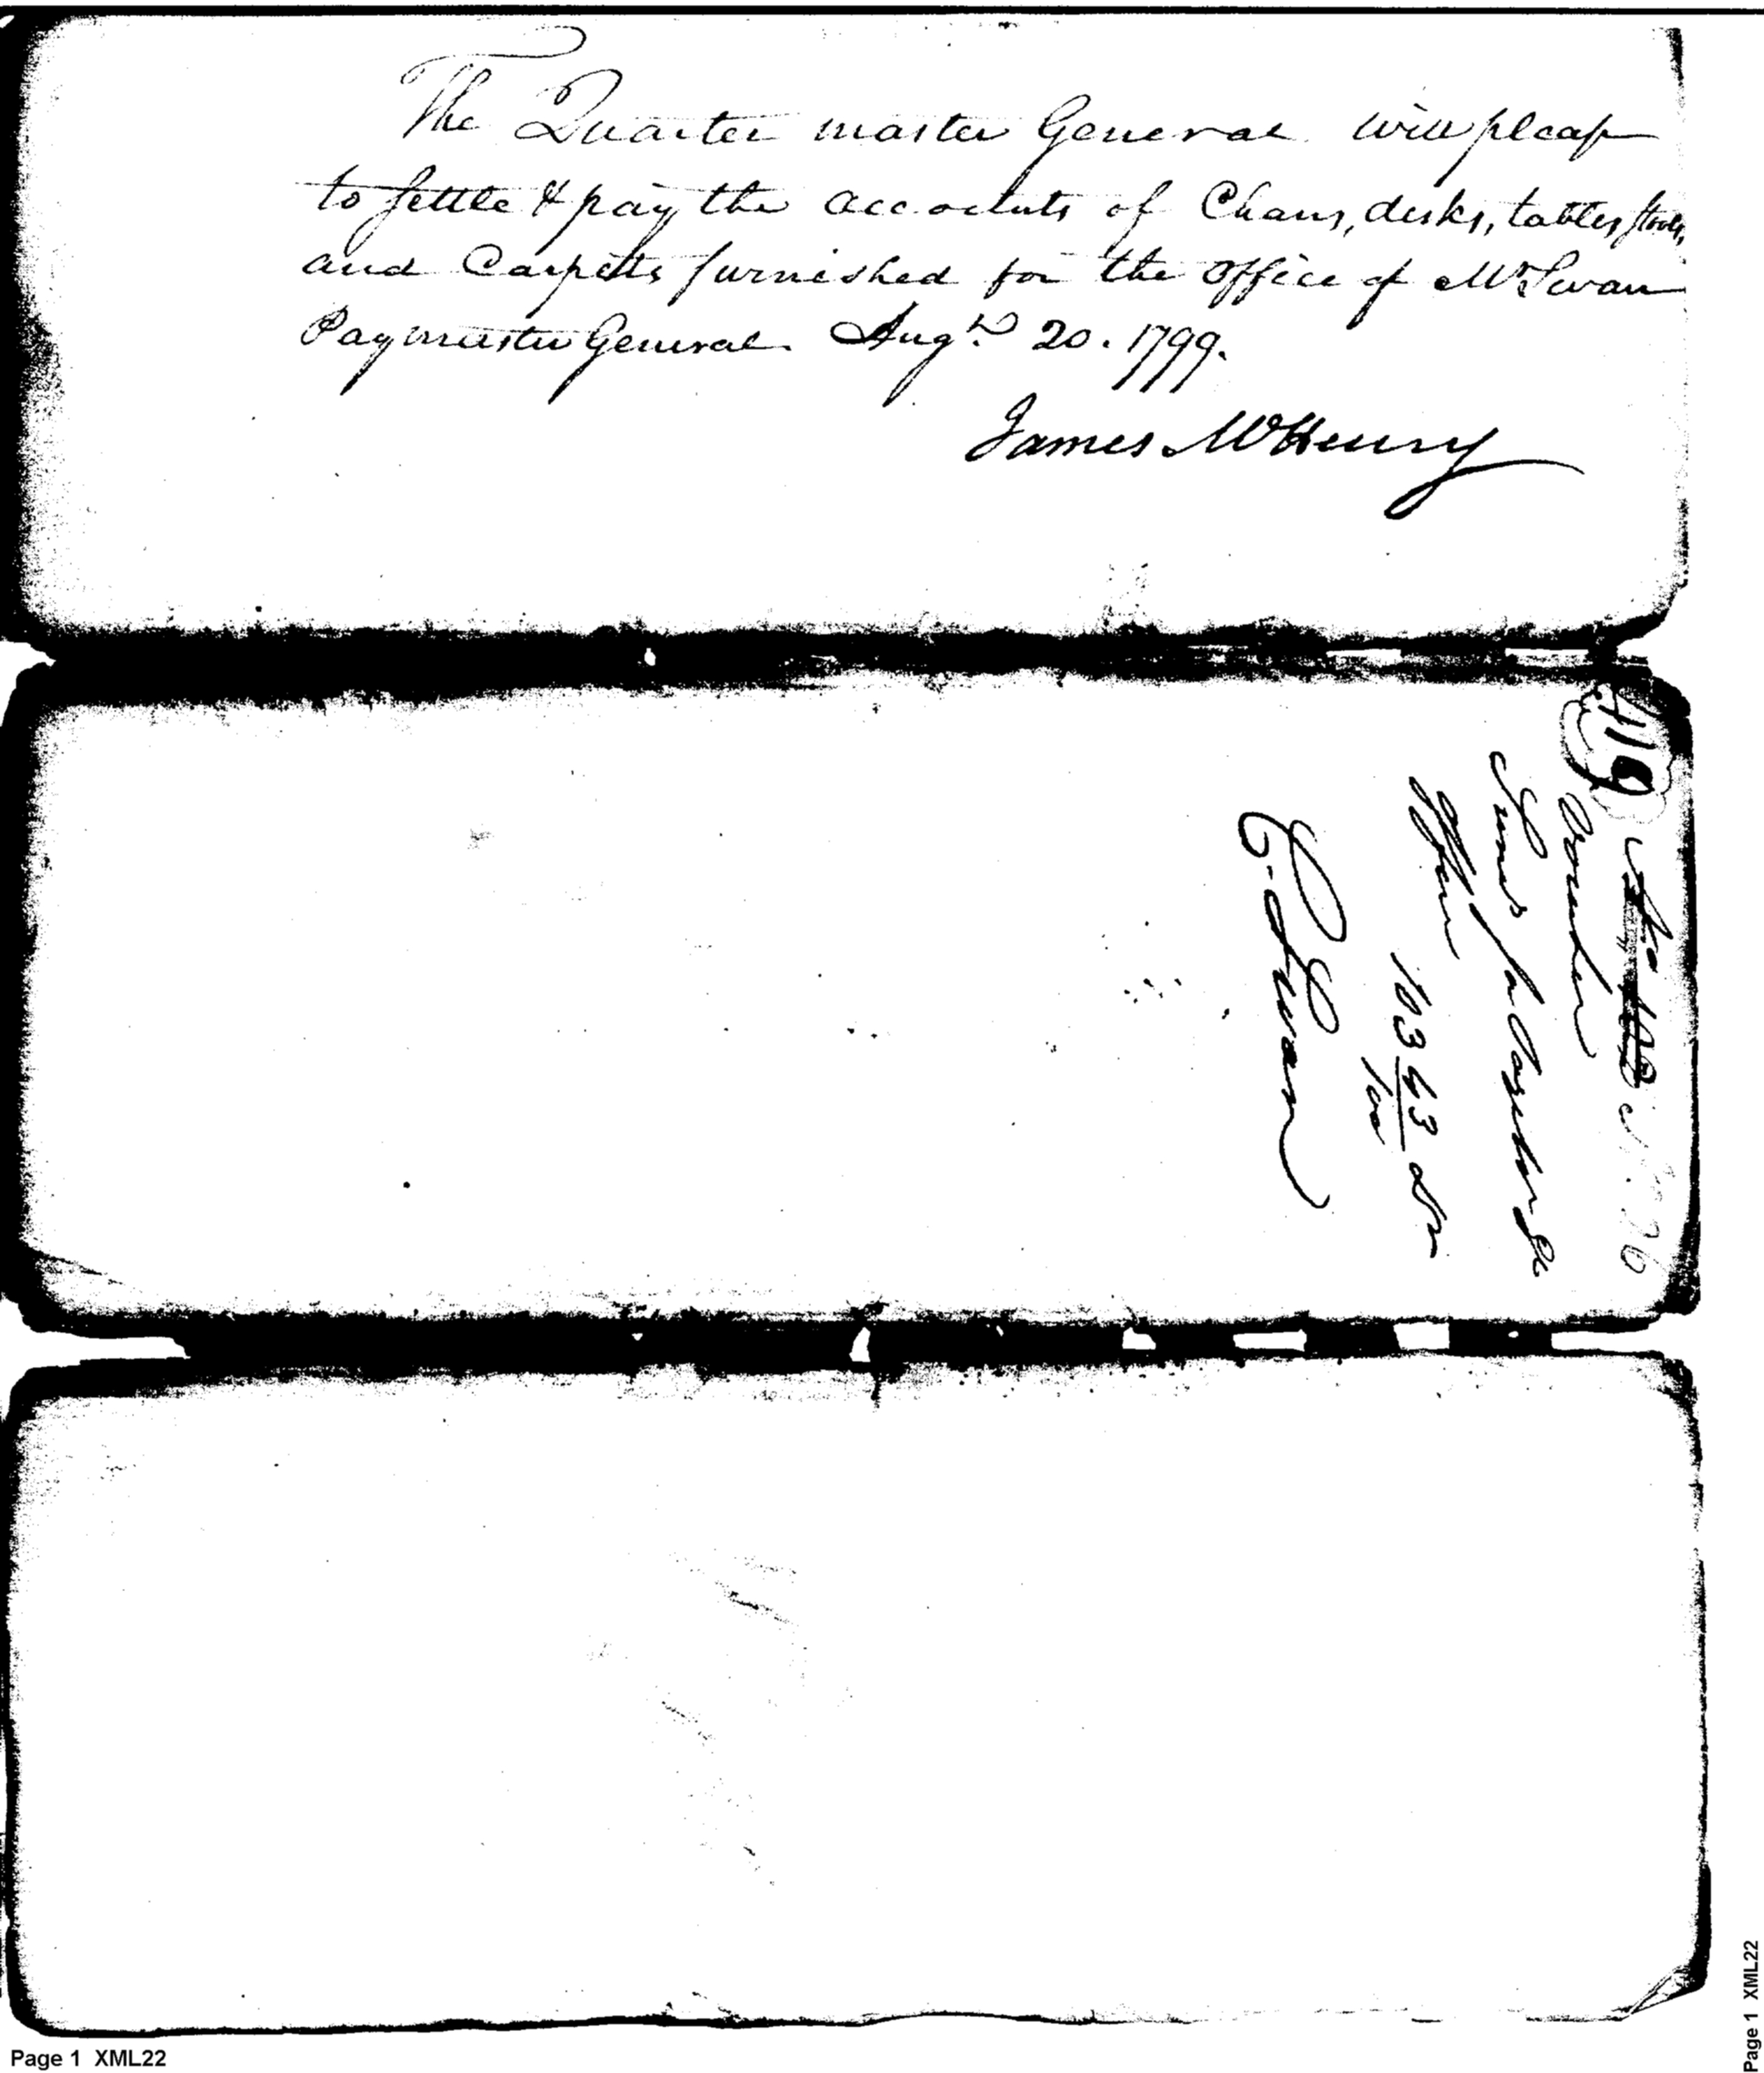 The Quarter master General will please
to settle & pay the accounts of Chairs, desks, tables, stools,
and Carpets furnished for the Office of Mr Swan
Paymaster General. Augt 20. 1799.
James McHenry
119
Sums for
Office
103 63/100 Drs
C. Swan
Page 1 XML22
Page 1 XML22